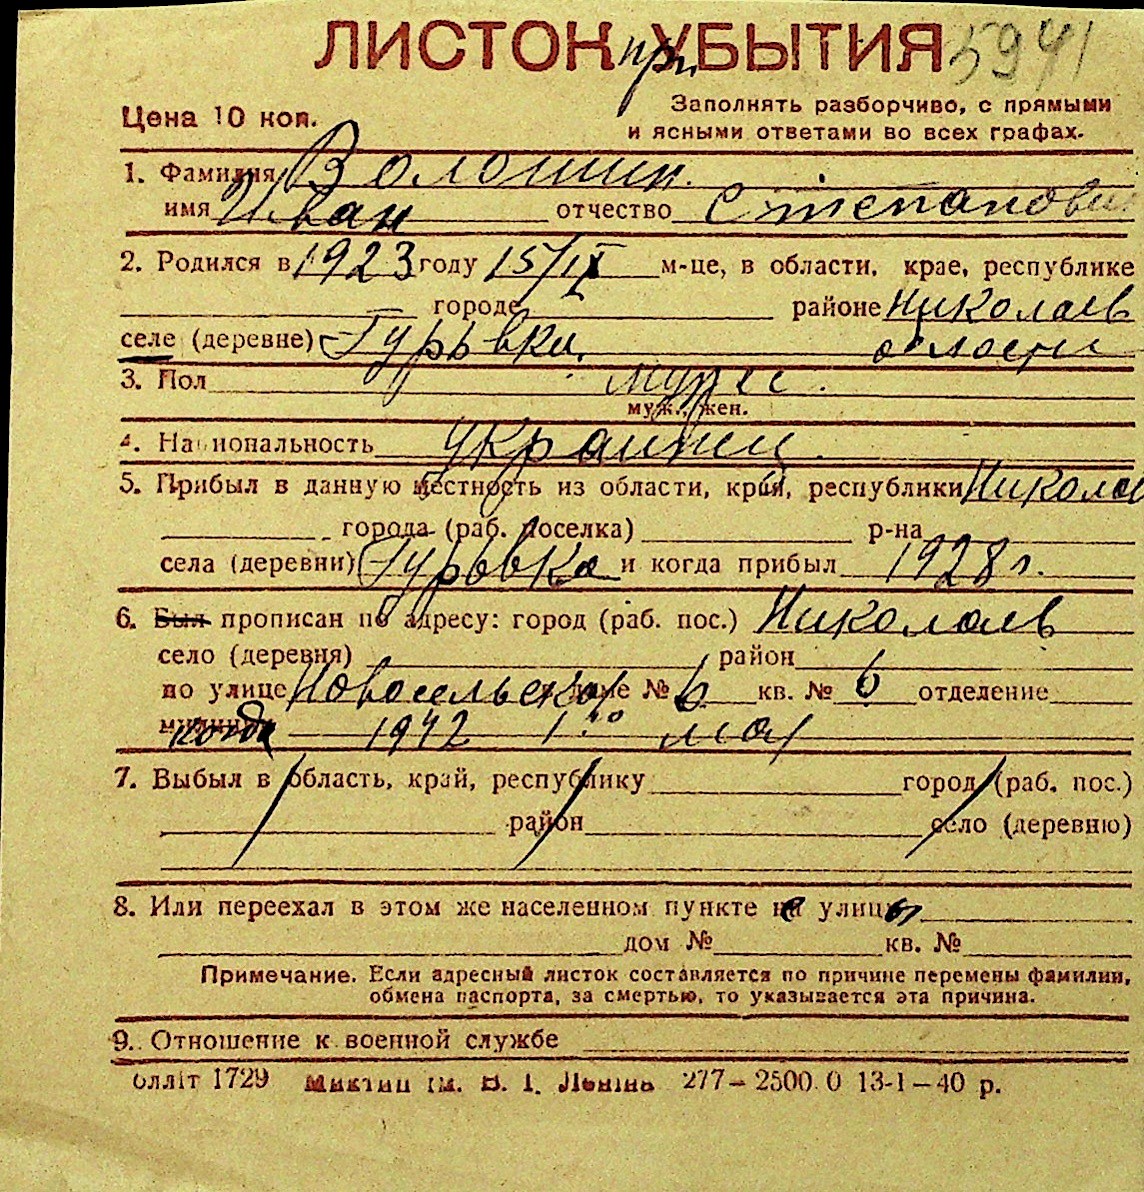 ЛИСТОК при УБЫТИЯ 5941
Цена 10 коп.
Заполнять разборчиво, с прямыми
и ясными ответами во всех графах.
1. Фамилия Волошин
имя Иван отчество Степанович
2. Родился в 1923 году 15/IX м-це, в области, крае, республике
городе районе Николаев
селе (деревне) Гурьвки области
3. Пол муж
муж., жен.
4. Национальность украинец
5. Прибыл в данную местность из области, край, республики Николаев
города (раб. поселка) р-на
села (деревни) Гурьвка и когда прибыл 1928 г.
6. Был прописан по адресу: город (раб. пос.) Николаев
село (деревня) район
по улице Новосельская доме № 6 кв. № 6 отделение
когда 1942 1го мая
7. Выбыл в область, край, республику город (раб. пос.)
район село (деревню)
8. Или переехал в этом же населенном пункте с улицы
дом № кв. №
Примечание. Если адресный листок составляется по причине перемены фамилии,
обмена паспорта, за смертью, то указывается эта причина.
9. Отношение к военной службе
олліт 1729 ім. В. І. Леніна 277—2500.0 13-1—40 р.